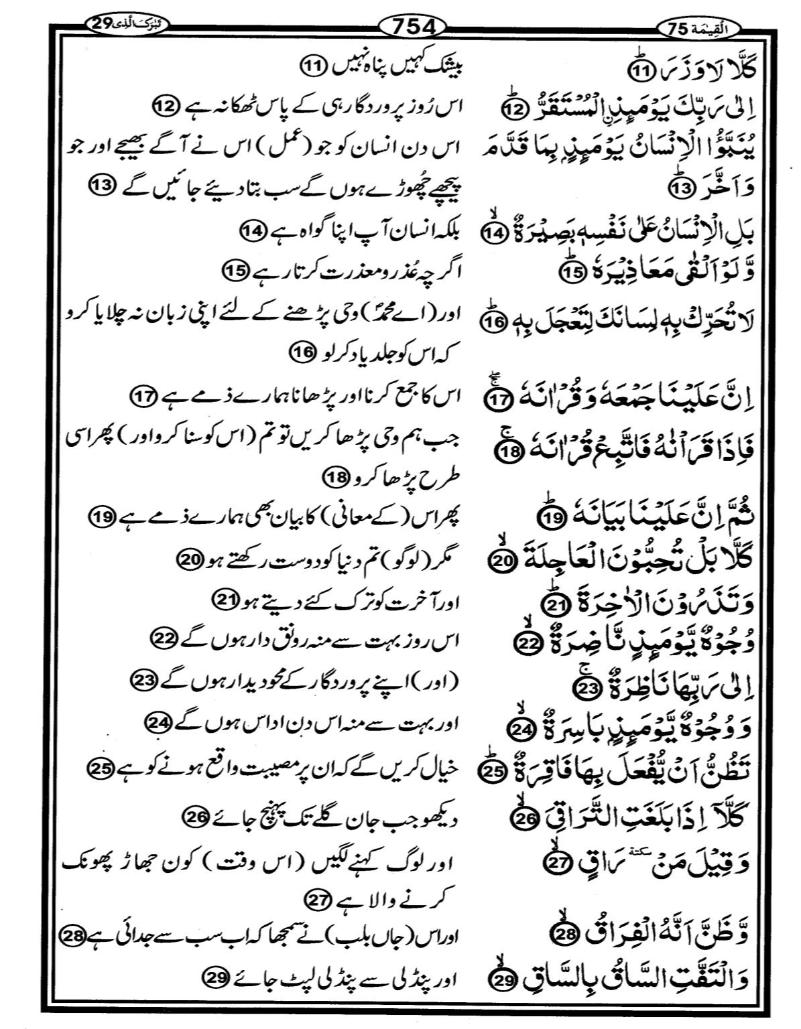 الْقِيٰمَة 75
754
تَبٰرَكَ الَّذِى 29
كَلَّا لَا وَزَرَ ⑪
بیشک کہیں پناہ نہیں ⑪
اِلٰى رَبِّكَ يَوْمَىِٕذِ ۨالْمُسْتَقَرُّ ⑫
اس روز پروردگار ہی کے پاس ٹھکانہ ہے ⑫
يُنَبَّؤُا الْاِنْسَانُ يَوْمَىِٕذٍۭ بِمَا قَدَّمَ
وَاَخَّرَ ⑬
اس دن انسان کو جو (عمل) اس نے آگے بھیجے اور جو
پیچھے چھوڑے ہوں گے سب بتا دیئے جائیں گے ⑬
بَلِ الْاِنْسَانُ عَلٰى نَفْسِهٖ بَصِيْرَةٌ ⑭
بلکہ انسان آپ اپنا گواہ ہے ⑭
وَّلَوْ اَلْقٰى مَعَاذِيْرَهٗ ⑮
اگرچہ عُذر و معذرت کرتا رہے ⑮
لَا تُحَرِّكْ بِهٖ لِسَانَكَ لِتَعْجَلَ بِهٖ ⑯
اور (اے محمدؐ) وحی پڑھنے کے لئے اپنی زبان نہ چلایا کرو
کہ اس کو جلد یاد کر لو ⑯
اِنَّ عَلَيْنَا جَمْعَهٗ وَقُرْاٰنَهٗ ⑰
اس کا جمع کرنا اور پڑھانا ہمارے ذمے ہے ⑰
فَاِذَا قَرَاْنٰهُ فَاتَّبِعْ قُرْاٰنَهٗ ⑱
جب ہم وحی پڑھا کریں تو تم (اس کو سنا کرو اور) پھر اسی
طرح پڑھا کرو ⑱
ثُمَّ اِنَّ عَلَيْنَا بَيَانَهٗ ⑲
پھر اس (کے معانی) کا بیان بھی ہمارے ذمے ہے ⑲
كَلَّا بَلْ تُحِبُّوْنَ الْعَاجِلَةَ ⑳
مگر (لوگو) تم دنیا کو دوست رکھتے ہو ⑳
وَتَذَرُوْنَ الْاٰخِرَةَ ㉑
اور آخرت کو ترک کئے دیتے ہو ㉑
وُجُوْهٌ يَّوْمَىِٕذٍ نَّاضِرَةٌ ㉒
اس روز بہت سے منہ رونق دار ہوں گے ㉒
اِلٰى رَبِّهَا نَاظِرَةٌ ㉓
(اور) اپنے پروردگار کے محو دیدار ہوں گے ㉓
وَوُجُوْهٌ يَّوْمَىِٕذٍۭ بَاسِرَةٌ ㉔
اور بہت سے منہ اس دن اداس ہوں گے ㉔
تَظُنُّ اَنْ يُّفْعَلَ بِهَا فَاقِرَةٌ ㉕
خیال کریں گے کہ ان پر مصیبت واقع ہونے کو ہے ㉕
كَلَّاۤ اِذَا بَلَغَتِ التَّرَاقِىَ ㉖
دیکھو جب جان گلے تک پہنچ جائے ㉖
وَقِيْلَ مَنْ سكتة رَاقٍ ㉗
اور لوگ کہنے لگیں (اس وقت) کون جھاڑ پھونک
کرنے والا ہے ㉗
وَّظَنَّ اَنَّهُ الْفِرَاقُ ㉘
اور اس (جاں بلب) نے سمجھا کہ اب سب سے جدائی ہے ㉘
وَالْتَفَّتِ السَّاقُ بِالسَّاقِ ㉙
اور پنڈلی سے پنڈلی لپٹ جائے ㉙